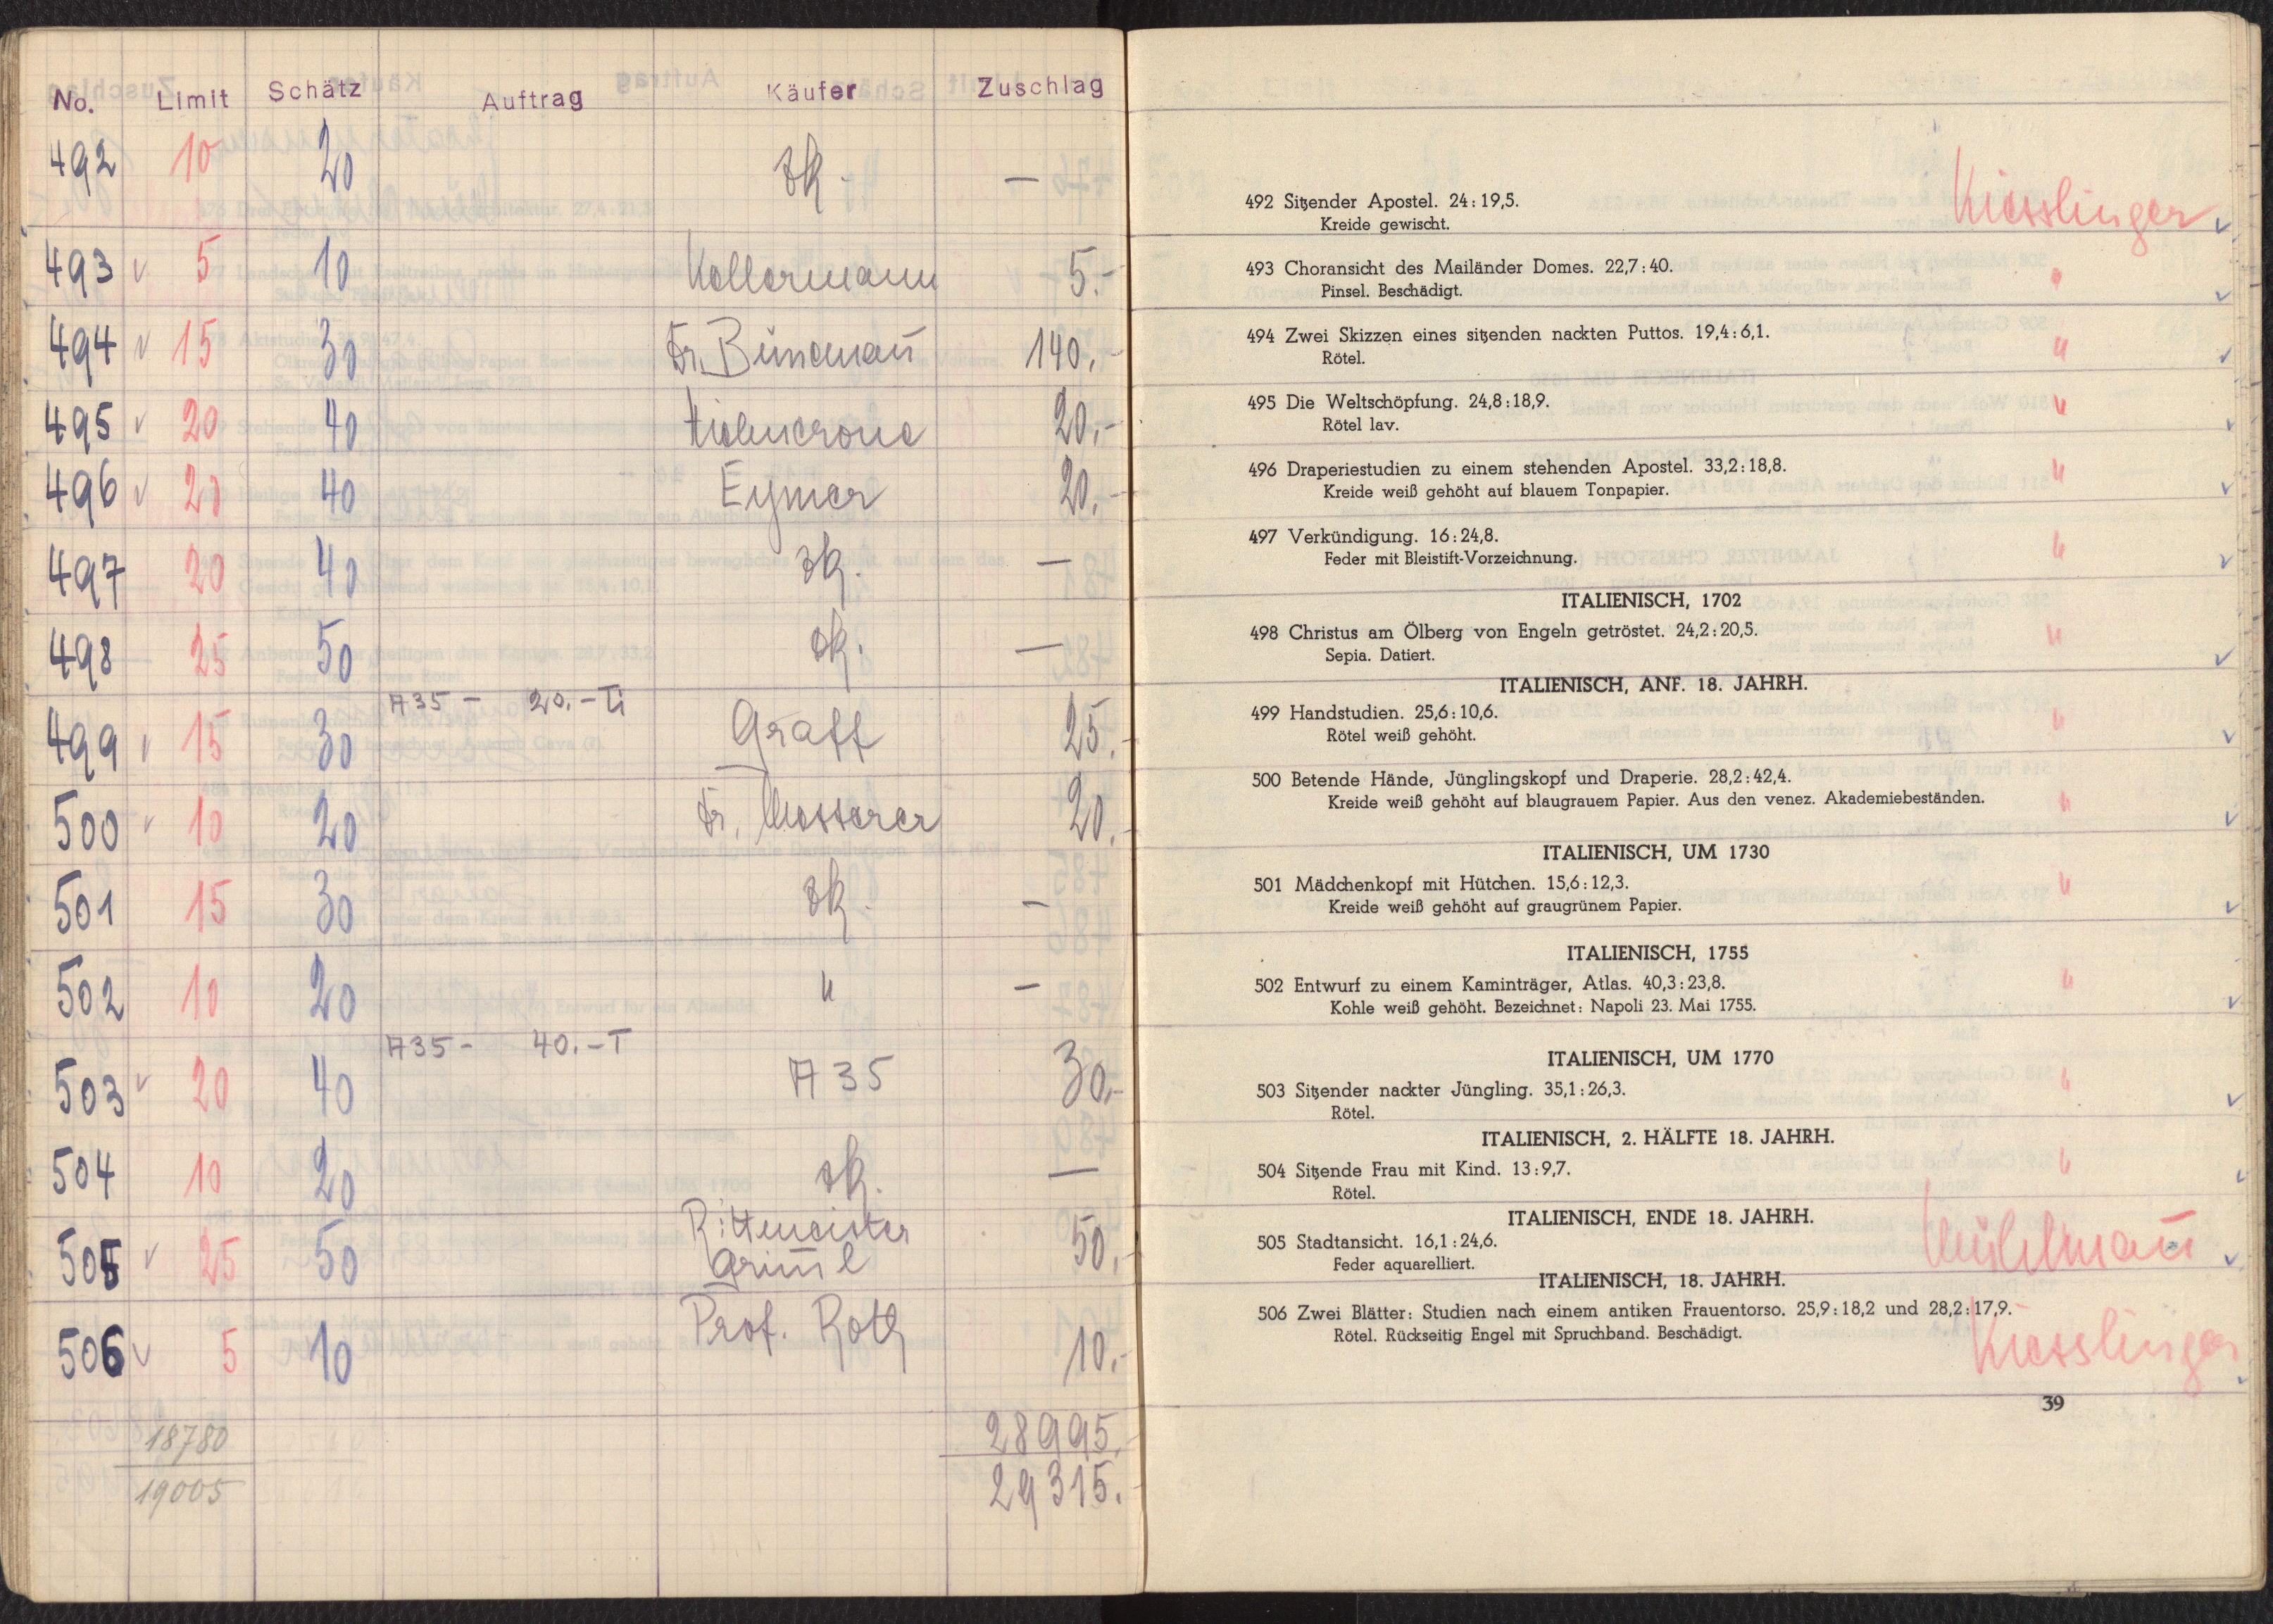 No. Limit Schätz Auftrag Käufer Zuschlag
492 10 20 zk. —
493 v 5 10 Kellermann 5.-
494 v 15 30 Dr. 140.-
495 v 20 40 20.-
496 v 20 40 Eymer 20.-
497 20 40 zk. —
498 25 50 zk. —
A35 - 20.-
499 v 15 30 Graff 25.
500 v 10 20 Dr. Messerer 20.
501 15 30 zk. —
502 10 20 " —
A35 - 40.-T
503 v 20 40 A 35 30.-
504 10 20 zk. —
505 v 25 50 Rittmeister 50.-
506 v 5 10 Prof. Roth 10.-
18780 28995.
19005 29315.
Kiesslinger
492 Sitzender Apostel. 24:19,5.
Kreide gewischt.
493 Choransicht des Mailänder Domes. 22,7:40. "
Pinsel. Beschädigt.
494 Zwei Skizzen eines sitzenden nackten Puttos. 19,4:6,1. "
Rötel.
495 Die Weltschöpfung. 24,8:18,9. "
Rötel lav.
496 Draperiestudien zu einem stehenden Apostel. 33,2:18,8. "
Kreide weiß gehöht auf blauem Tonpapier.
497 Verkündigung. 16:24,8. "
Feder mit Bleistift-Vorzeichnung.
ITALIENISCH, 1702
498 Christus am Ölberg von Engeln getröstet. 24,2:20,5. "
Sepia. Datiert.
ITALIENISCH, ANF. 18. JAHRH.
499 Handstudien. 25,6:10,6. "
Rötel weiß gehöht.
500 Betende Hände, Jünglingskopf und Draperie. 28,2:42,4.
Kreide weiß gehöht auf blaugrauem Papier. Aus den venez. Akademiebeständen. "
ITALIENISCH, UM 1730
501 Mädchenkopf mit Hütchen. 15,6:12,3. "
Kreide weiß gehöht auf graugrünem Papier.
ITALIENISCH, 1755
502 Entwurf zu einem Kaminträger, Atlas. 40,3:23,8. "
Kohle weiß gehöht. Bezeichnet: Napoli 23. Mai 1755.
ITALIENISCH, UM 1770
503 Sitzender nackter Jüngling. 35,1:26,3. "
Rötel.
ITALIENISCH, 2. HÄLFTE 18. JAHRH.
504 Sitzende Frau mit Kind. 13:9,7. "
Rötel.
ITALIENISCH, ENDE 18. JAHRH.
505 Stadtansicht. 16,1:24,6.
Feder aquarelliert.
ITALIENISCH, 18. JAHRH.
506 Zwei Blätter: Studien nach einem antiken Frauentorso. 25,9:18,2 und 28,2:17,9.
Rötel. Rückseitig Engel mit Spruchband. Beschädigt. Kiesslinger
39